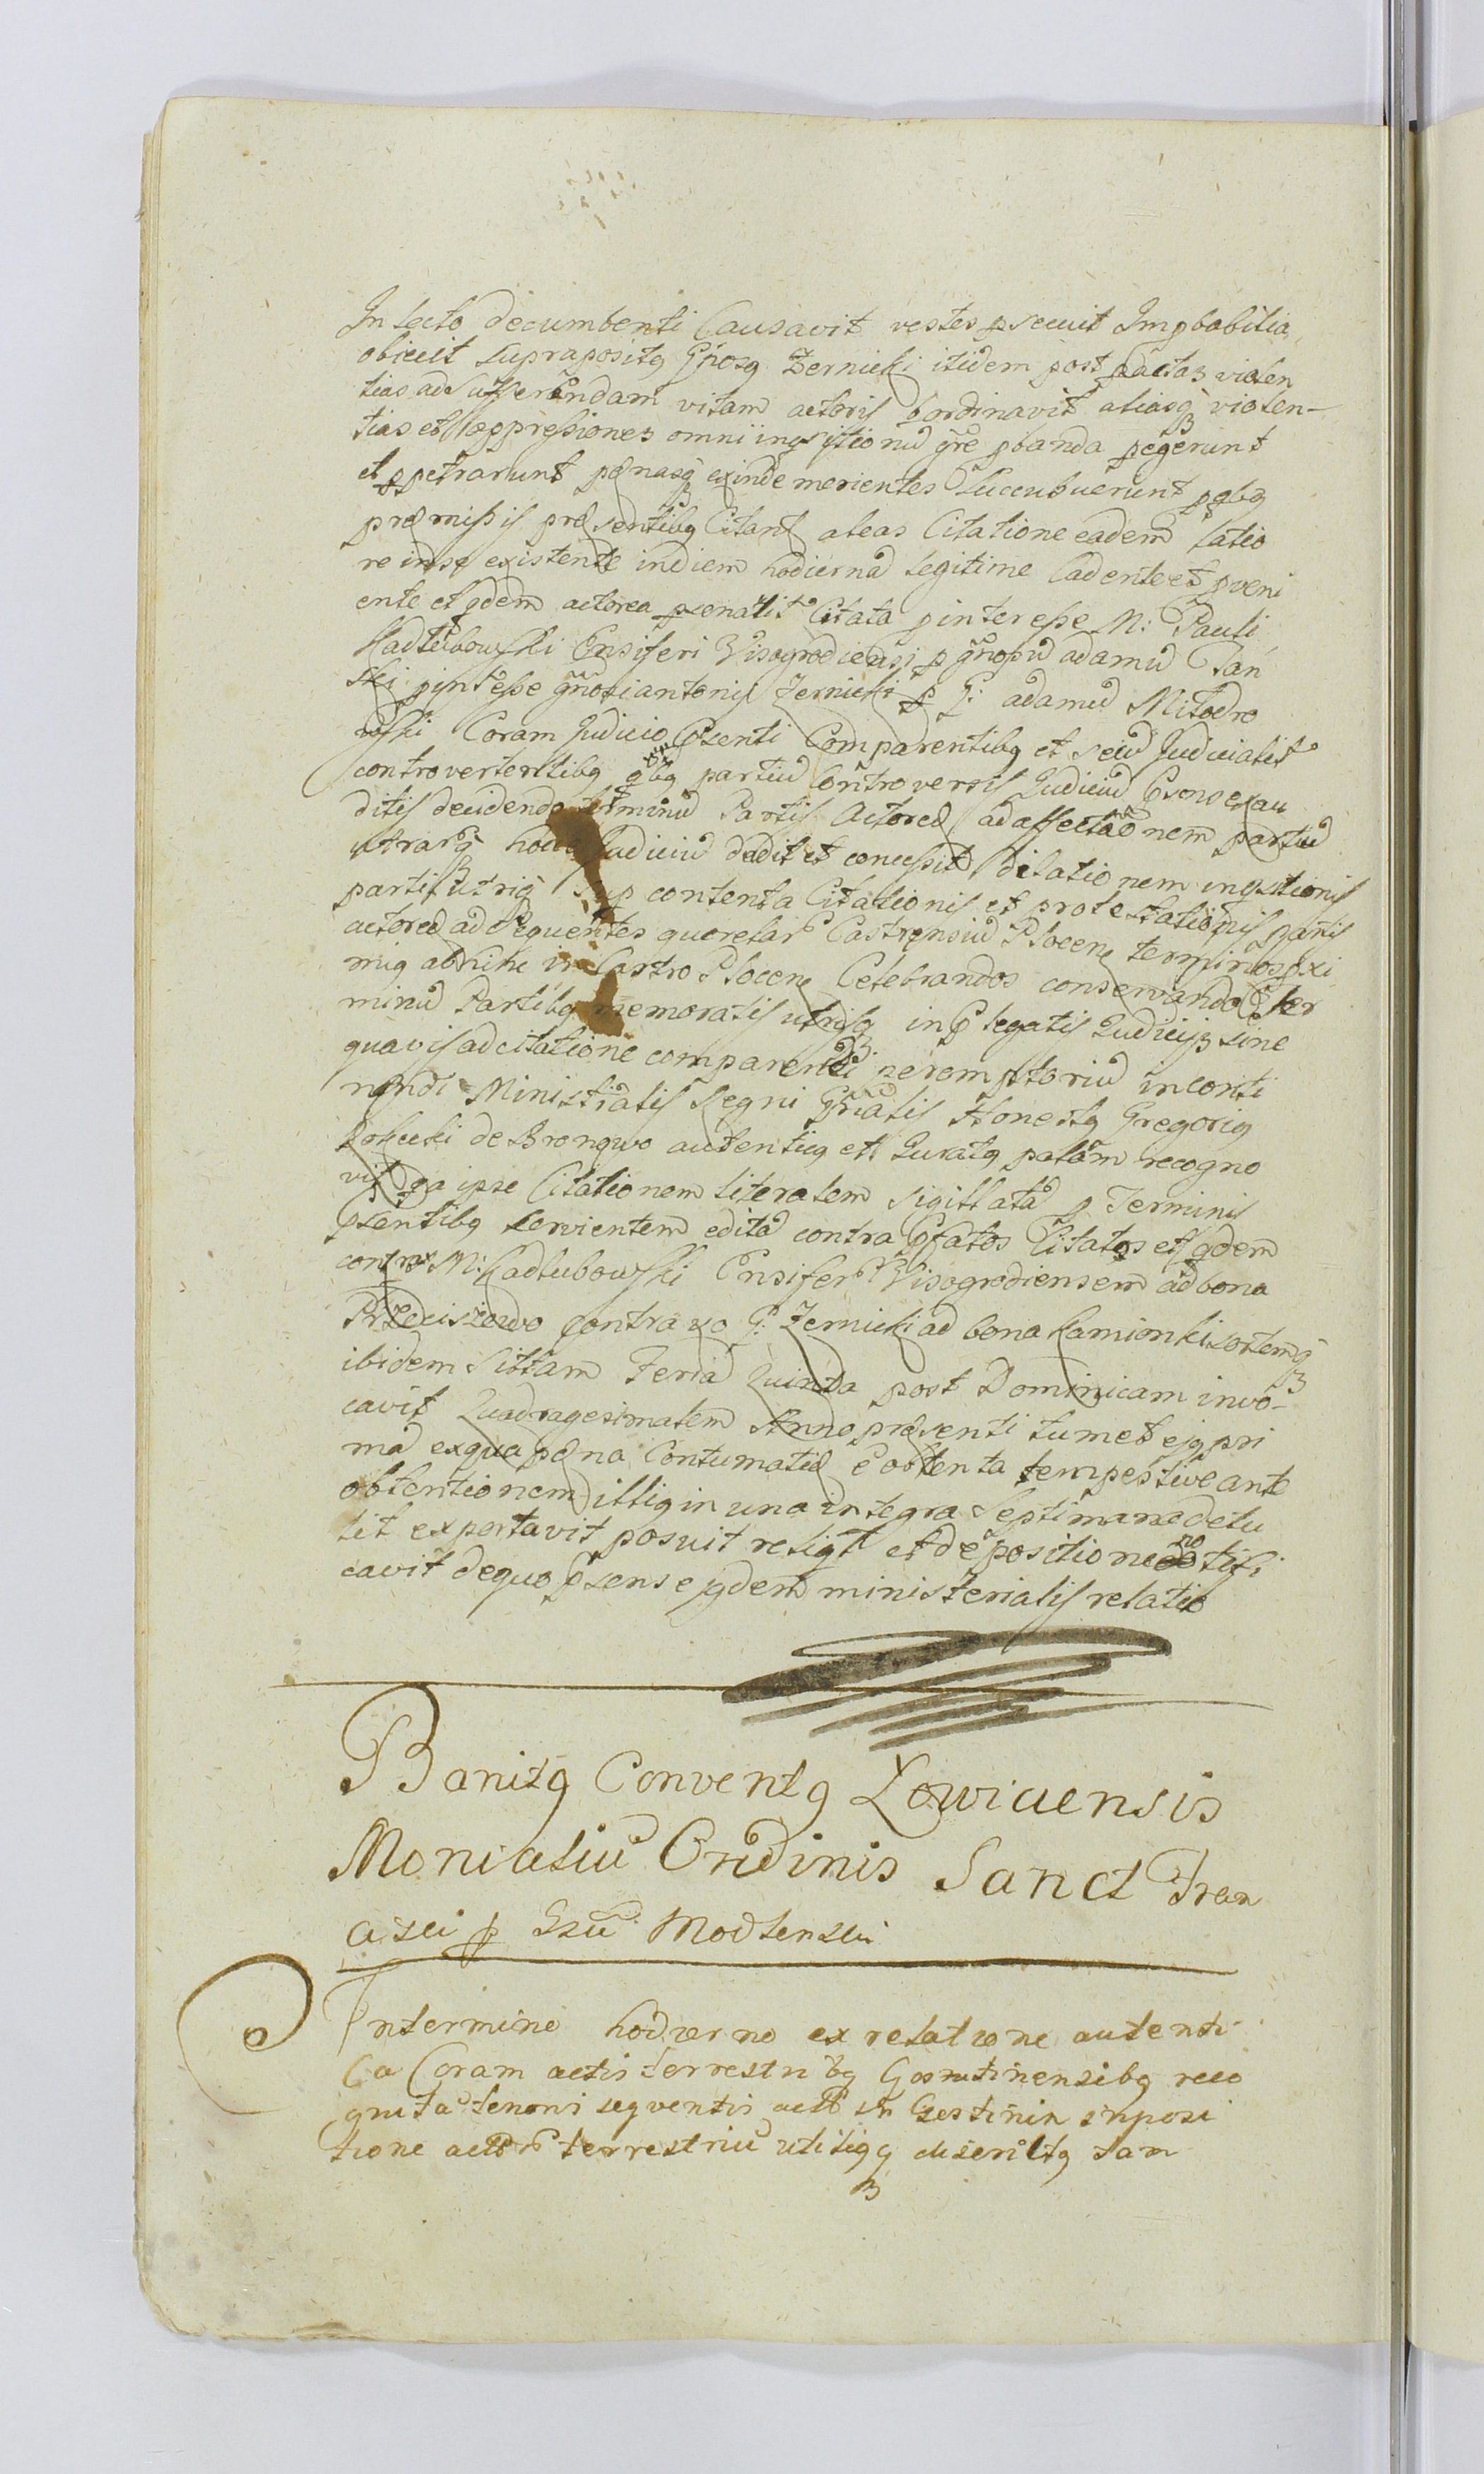 In lecto decumbenti Causavit vestes psecuit Impbabilia
obiecit supraposit9 Gnos9 Zernicki itidem post pactas violen
tias ad aufferendam vitam actoris bordinavit aliasq3 violen-
tias et oppressiones omni inqsitionū gre pbanda pegerunt
et ppetrarunt poenasq3 exinde merientes succubuerunt pqb9
praemissis praesentib9 Citant9 aleas Citatione eadem latio
re in se existente in diem hodiernā legitime Cadente et pveni
ente et qdem actorea psonalit Citata p interesse M: Pauli
Kadlubowski Ensiferi Visogrodiensi p gnosū adamū Jan
ski p intesse gnosi antonij Zernicki p G: adamū Mlodro
wski Coram Judicio Psenti Comparentib9 et seū Judicialit
controvertentib9 qb9 partiū Controversijs Judiciū Psens exau
ditis decidendo terminū Partis Actoreae ad affectaonem partiū
utrarq3 hocce Judiciū dedit et concessit dilationem inqstionis
partis utriq3 sup contenta Citationis et protestationis partis
actoreae ad sequentes querelar Castrensiū Plocen9 terminos pxi
mi9 abhinc in Castro Plocen9 Celebrandos conservando ter
minū Partib9 memoratis utrisq3 in Plegatis Judicijs sine
quavis adcitatione comparendi peremptoriū in conti
nendi Ministrialis Regni Gnralis Honest9 Gregori9
Rokicki de Bronowo autentic9 et Jurat9 palam recogno
vit qa ipse Citationem literalem sigillatā p Terminis
Psentib9 servientem editā contra Pfatos Citatos et qdem
contra M: Kadlubowski Ensifer Visogrodiensem ad bona
Przeciszewo contra vo G: Zernicki ad bona Kamionki sortemq3
ibidem sittam Feriā Quinta post Dominicam invo-
cavit Quadragesimalem Anno praesenti tum et ej9 pri
mā ex qua poena Contumatiae e obtenta tempestive ante
obtentionem illi9 in una integra septimana detu
lit exportavit posuit reliqt et de positione notifi
cavit de quo Psens ejqdem ministerialis relatio
Banit9 Convent9 Lowiciensis
Monialiū Ordinis Sanct Fran
cisci p Gsū Modlenski
In termino hodierno ex relatione autenti
ca Coram actis terrestrib9 Gostinensib9 reco
gnita tenoris seqventis act in Gostinin suposi
tione act terrestriū utiliq9 discrilt9 tam